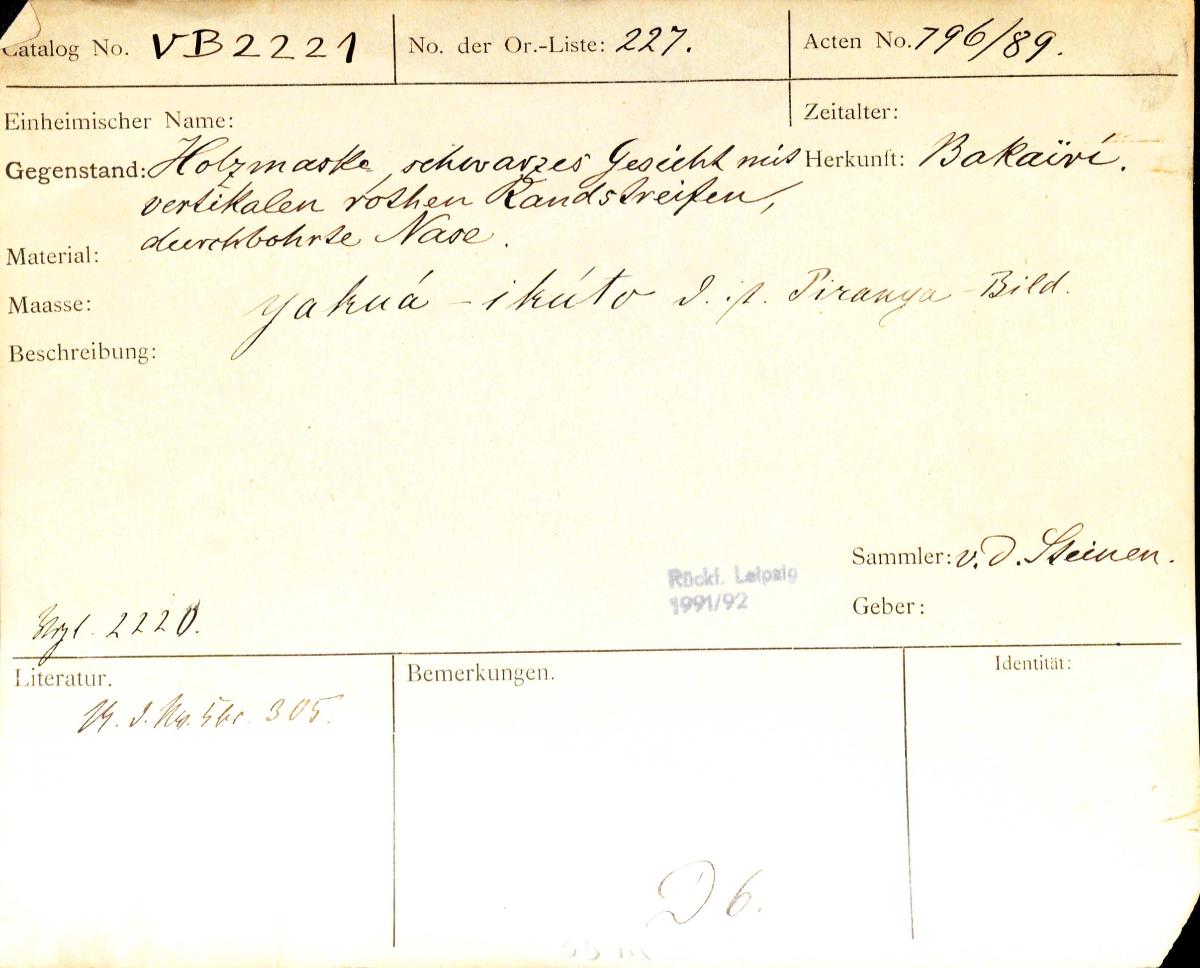 Catalog No. VB2221
No. der Or.-Liste: 227.
Acten No. 796/89.
Einheimischer Name:
Zeitalter:
Gegenstand: Holzmaske, schwarzes Gesicht mit
vertikalen rothen Randstreifen,
durchbohrte Nase.
Herkunft: Bakaïri.
Material:
Maasse:
yakuá-ikúto d. i. Piranya-Bild.
Beschreibung:
Sammler: v. d. Steinen.
Rückf. Leipzig
1991/92
Geber:
2220.
Literatur.
305.
Bemerkungen.
D 6.
Identität: